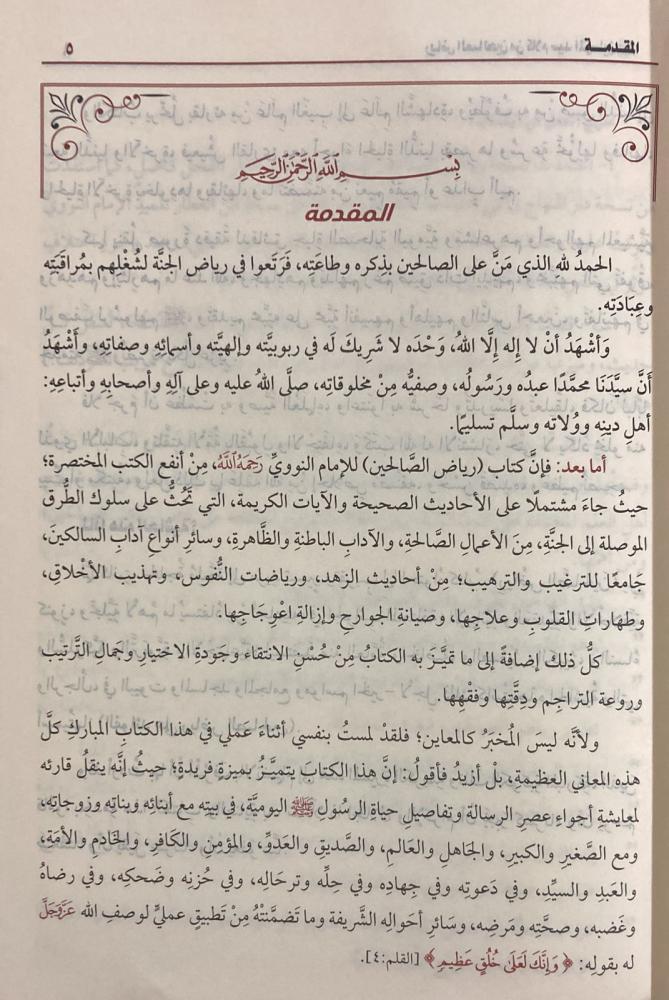 المقدمــة ٥
بِسْمِ اللَّهِ الرَّحْمَنِ الرَّحِيمِ
المقدمة
الحمدُ لله الذي مَنَّ على الصالحين بذِكره وطاعَتِه، فَرَتَعوا في رياض الجنَّة لشُغْلِهم بمُراقَبَتِه
وعِبَادَتِه.
وَأَشْهَدُ أنْ لا إله إلَّا اللهُ، وَحْدَه لا شَرِيكَ لَه في ربوبيَّته وإلهيَّته وأسمائِه وصفاتِه، وأَشْهَدُ
أنَّ سيَّدَنَا محمَّدًا عبدُه ورَسُولُه، وصفيُّه مِنْ مخلوقاتِه، صلَّى اللهُ عليه وعلى آلِهِ وأصحابِهِ وأتباعِهِ:
أهلِ دينِه ووُلاته وسلَّم تسليمًا.
أما بعد: فإنَّ كتابَ (رياض الصَّالحين) للإمام النوويِّ رَحِمَهُ اللَّهُ، مِنْ أنفع الكتب المختصرة؛
حيثُ جاءَ مشتملًا على الأحاديث الصحيحة والآيات الكريمة، التي تَحُثُّ على سلوك الطُّرق
الموصلة إلى الجنَّةِ، مِنَ الأعمالِ الصَّالحةِ، والآدابِ الباطنةِ والظَّاهرةِ، وسائرِ أنواعِ آدابِ السالكينَ،
جَامعًا للترغيبِ والترهيب؛ مِنْ أحاديثِ الزهد، ورياضات النُّفوس، وتهذيب الأخْلاقِ،
وطهاراتِ القلوبِ وعلاجِها، وصيانةِ الجوارحِ وإزالةِ اعْوِجَاجِها.
كلُّ ذلك إضافةً إلى ما تميَّـزَ به الكتابُ مِنْ حُسْنِ الانتقاء وجَودة الاختيارِ وجَمالِ التَّرتيب
وروعة التراجِم ودِقَّتِها وفقْهِها.
ولأنَّه ليسَ المُخبَرُ كالمعاين؛ فلقدْ لمستُ بنفسي أثناءَ عَمَلي في هذا الكتابِ المباركِ كلَّ
هذه المعاني العظيمةِ، بلْ أزيدُ فأقولُ: إنَّ هذا الكتابَ يتميَّـزُ بميزةٍ فريدةٍ؛ حيثُ إنَّه ينقلُ قارئه
لمعايشةِ أجواءِ عصرِ الرسالة وتفاصيلِ حياةِ الرسُول ﷺ اليوميَّة، في بيتِه مع أبنائِه وبناتِه وزوجاتِه،
ومع الصَّغيرِ والكبيرِ، والجاهلِ والعالمِ، والصَّديقِ والعدوِّ، والمؤمنِ والكافرِ، والخَادمِ والأمَةِ،
والعبدِ والسيِّدِ، في دَعوتِه وفي جِهادِه وفي حِلِّه وترحَالِه، وفي حُزنِه وضَحكِه، وفي رضاهُ
وغَضبه، وصحَّتِه ومَرضِه، وسَائرِ أحوَالِه الشَّريفة وما تَضمَّنتْهُ مِنْ تَطبيقٍ عمليٍّ لوصفِ الله عَزَّوَجَلَّ
له بقولِه: ﴿ وَإِنَّكَ لَعَلَىٰ خُلُقٍ عَظِيمٍ ﴾ [القلم:٤].